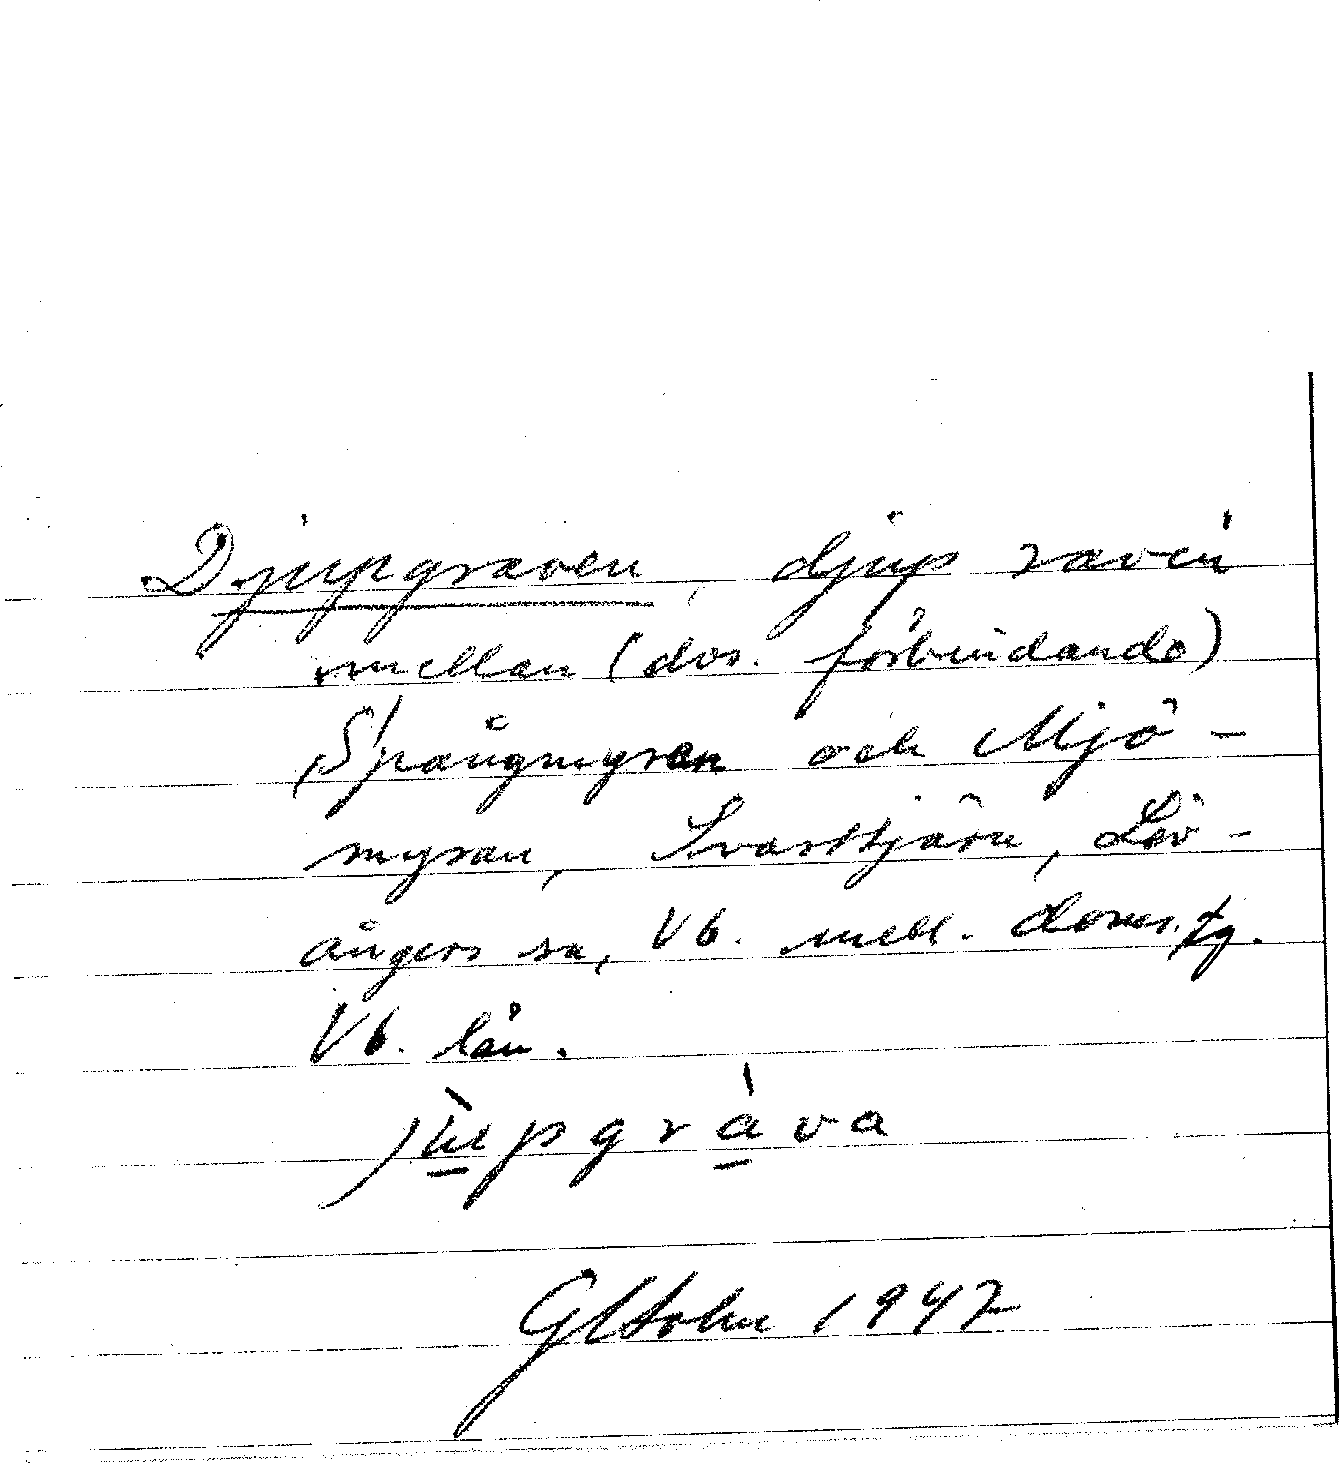 Djupgraven, djup ravin
mellan (dvs. förbindande)
Spångmyran och Mjö-
myran, Svarttjärn, Löv-
ångers sn, Vb. mell. doms.tg.
Vb. län.
jùpgráva
GHolm 1947